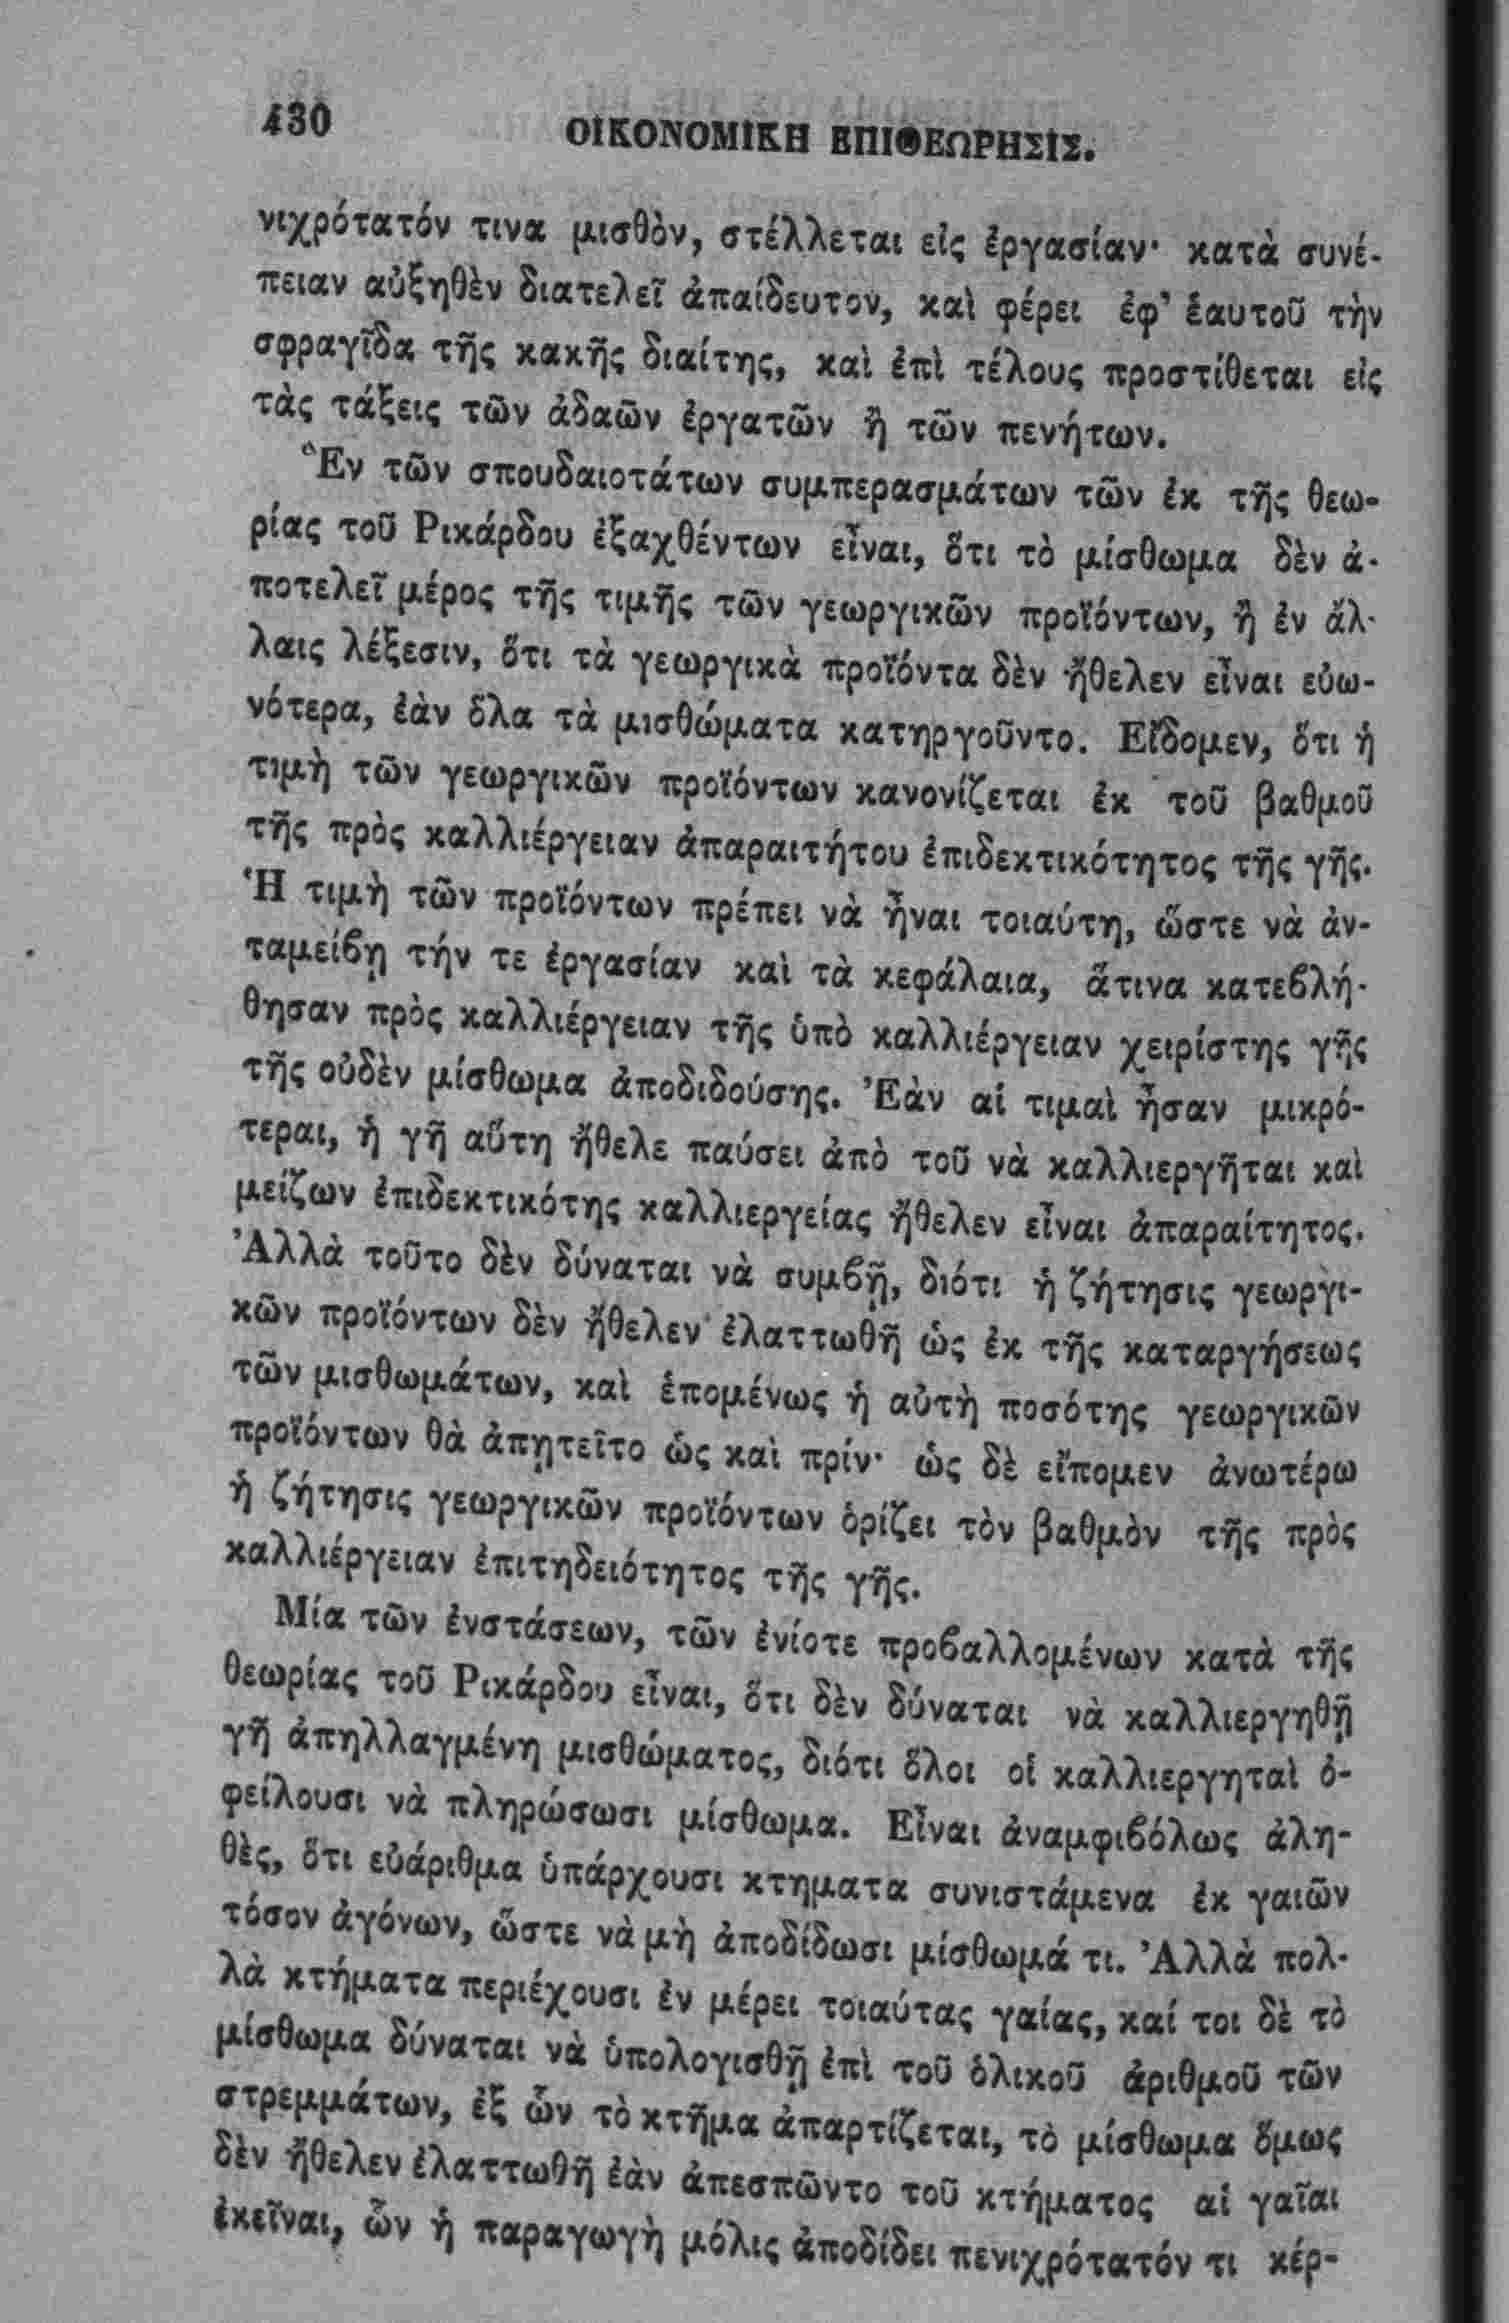 430
ΟΙΚΟΝΟΜΙΚΗ ΕΠΙΘΕΩΡΗΣΙΣ.
νιχρότατόν τινα μισθὸν, στέλλεται εἰς ἐργασίαν· κατὰ συνέ-
πειαν αὐξηθὲν διατελεῖ ἀπαίδευτον, καὶ φέρει ἐφ’ ἑαυτοῦ τὴν
σφραγῖδα τῆς κακῆς διαίτης, καὶ ἐπὶ τέλους προστίθεται εἰς
τὰς τάξεις τῶν ἀδαῶν ἐργατῶν ἢ τῶν πενήτων.
Ἓν τῶν σπουδαιοτάτων συμπερασμάτων τῶν ἐκ τῆς θεω-
ρίας τοῦ Ρικάρδου ἐξαχθέντων εἶναι, ὅτι τὸ μίσθωμα δὲν ἀ-
ποτελεῖ μέρος τῆς τιμῆς τῶν γεωργικῶν προϊόντων, ἢ ἐν ἄλ-
λαις λέξεσιν, ὅτι τὰ γεωργικὰ προϊόντα δὲν ἤθελεν εἶναι εὐω-
νότερα, ἐὰν ὅλα τὰ μισθώματα κατηργοῦντο. Εἴδομεν, ὅτι ἡ
τιμὴ τῶν γεωργικῶν προϊόντων κανονίζεται ἐκ τοῦ βαθμοῦ
τῆς πρὸς καλλιέργειαν ἀπαραιτήτου ἐπιδεκτικότητος τῆς γῆς.
Ἡ τιμὴ τῶν προϊόντων πρέπει νὰ ἦναι τοιαύτη, ὥστε νὰ ἀν-
ταμείϐῃ τήν τε ἐργασίαν καὶ τὰ κεφάλαια, ἅτινα κατεϐλή-
θησαν πρὸς καλλιέργειαν τῆς ὑπὸ καλλιέργειαν χειρίστης γῆς
τῆς οὐδὲν μίσθωμα ἀποδιδούσης. Ἐὰν αἱ τιμαὶ ἦσαν μικρό-
τεραι, ἡ γῆ αὕτη ἤθελε παύσει ἀπὸ τοῦ νὰ καλλιεργῆται καὶ
μείζων ἐπιδεκτικότης καλλιεργείας ἤθελεν εἶναι ἀπαραίτητος.
Ἀλλὰ τοῦτο δὲν δύναται νὰ συμϐῇ, διότι ἡ ζήτησις γεωργι-
κῶν προϊόντων δὲν ἤθελεν ἐλαττωθῆ ὡς ἐκ τῆς καταργήσεως
τῶν μισθωμάτων, καὶ ἑπομένως ἡ αὐτὴ ποσότης γεωργικῶν
προϊόντων θὰ ἀπῃτεῖτο ὡς καὶ πρίν· ὡς δὲ εἴπομεν ἀνωτέρω
ἡ ζήτησις γεωργικῶν προϊόντων ὁρίζει τὸν βαθμὸν τῆς πρὸς
καλλιέργειαν ἐπιτηδειότητος τῆς γῆς.
Μία τῶν ἐνστάσεων, τῶν ἐνίοτε προϐαλλομένων κατὰ τῆς
θεωρίας τοῦ Ρικάρδου εἶναι, ὅτι δὲν δύναται νὰ καλλιεργηθῇ
γῆ ἀπηλλαγμένη μισθώματος, διότι ὅλοι οἱ καλλιεργηταὶ ὀ-
φείλουσι νὰ πληρώσωσι μίσθωμα. Εἶναι ἀναμφιϐόλως ἀλη-
θὲς, ὅτι εὐάριθμα ὑπάρχουσι κτηματα συνιστάμενα ἐκ γαιῶν
τόσον ἀγόνων, ὥστε νὰ μὴ ἀποδίδωσι μίσθωμά τι. Ἀλλὰ πολ-
λὰ κτήματα περιέχουσι ἐν μέρει τοιαύτας γαίας, καί τοι δὲ τὸ
μίσθωμα δύναται νὰ ὑπολογισθῇ ἐπὶ τοῦ ὁλικοῦ ἀριθμοῦ τῶν
στρεμμάτων, ἐξ ὧν τὸ κτῆμα ἀπαρτίζεται, τὸ μίσθωμα ὅμως
δὲν ἤθελεν ἐλαττωθῆ ἐὰν ἀπεσπῶντο τοῦ κτήματος αἱ γαῖαι
ἐκεῖναι, ὧν ἡ παραγωγὴ μόλις ἀποδίδει πενιχρότατόν τι κέρ-